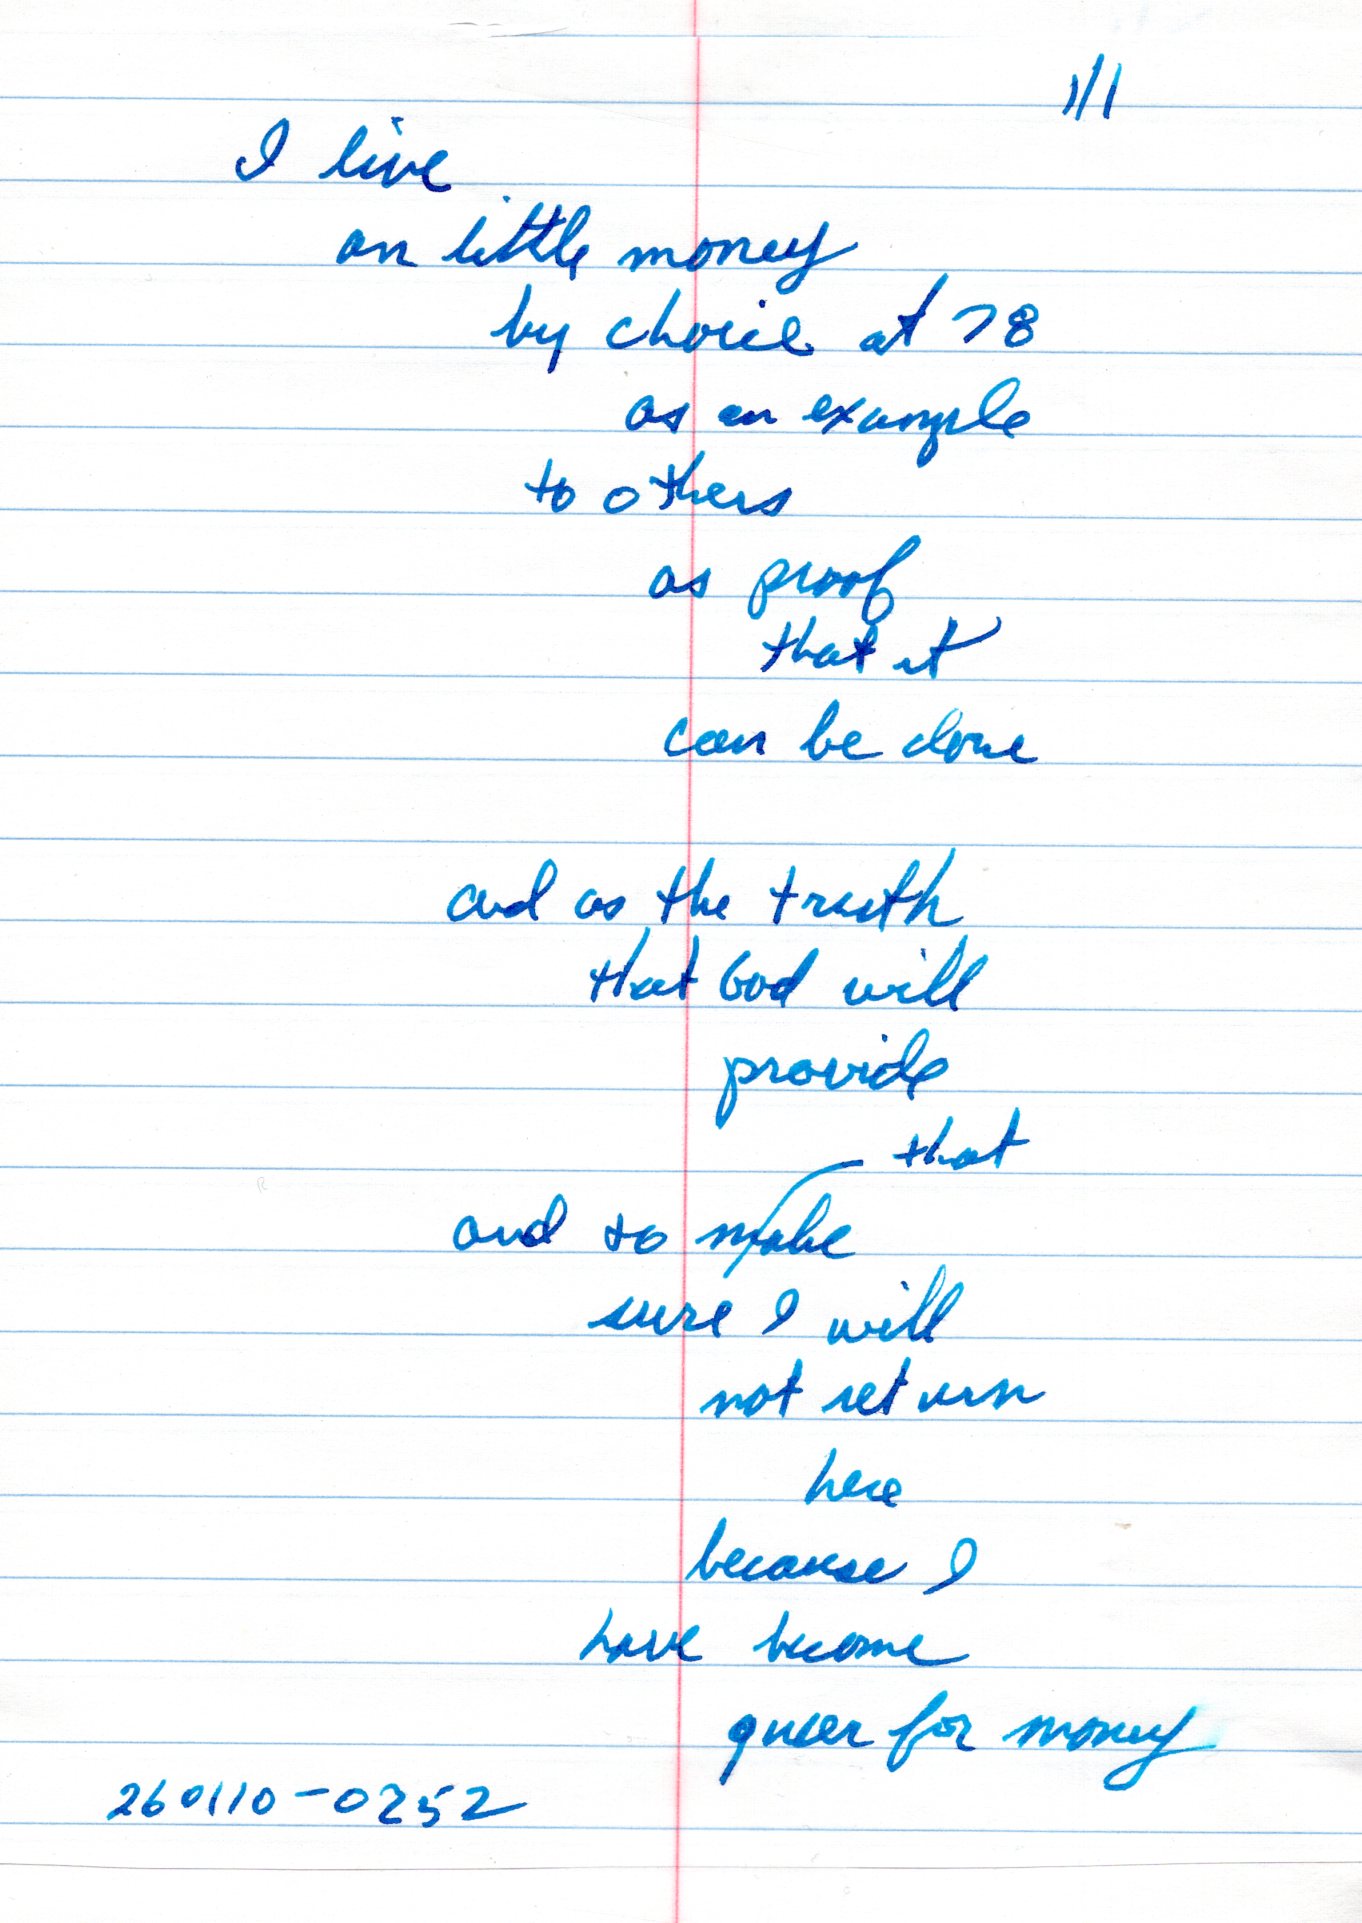 1/1
I live
on little money
by choice at 78
as an example
to others
as proof
that it
can be done
and as the truth
that God will
provide
that
and to make
sure I will
not return
here
because I
have become
queer for money
260110-0252